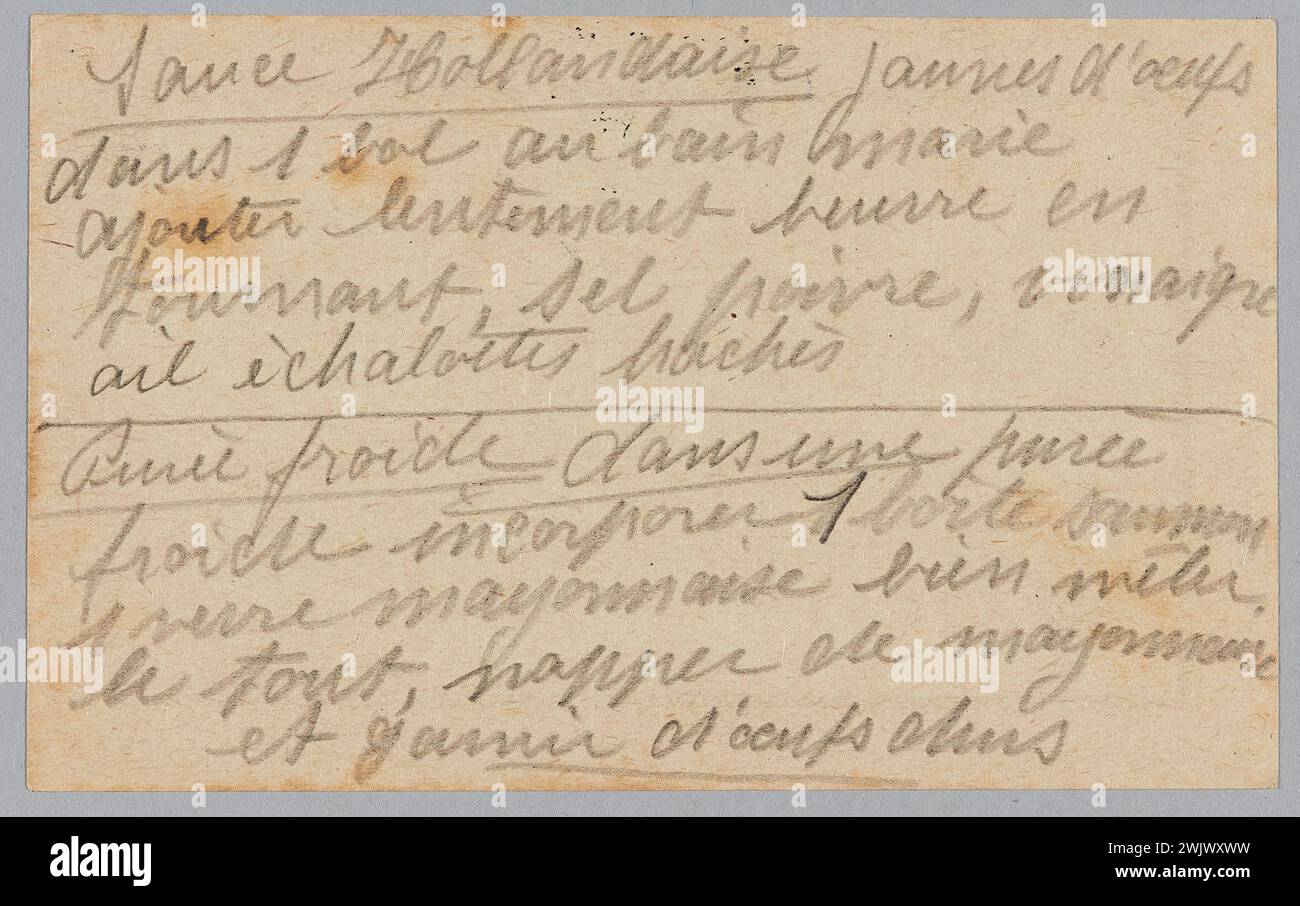 Sauce Hollandaise jaunes d'œufs
dans 1 bol au bain marie
ajouter lentement beurre en
tournant, sel poivre, vinaigre
ail èchalottes hachès
Purèe froide dans une purèe
froide incorporer 1 boite saumon
1 verre mayonnaise bien mêler
le tout, napper de mayonnaise
et garnir d'œufs durs
alamy
Image ID: 2WJWXWW
www.alamy.com